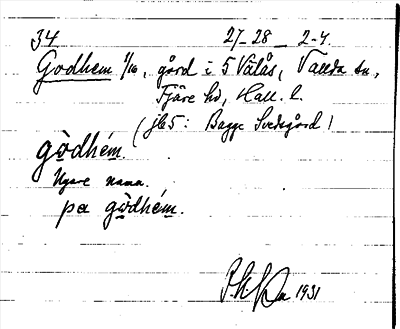 34 27-28 - 2-4.
Godhem 1/16, gård i 5 Välås, Vallda sn,
Fjäre hd, Hall. l.
(jb 5: Bagge Svedsgård)
gòdhém.
Nyare namn.
pa gòdhém.
1931